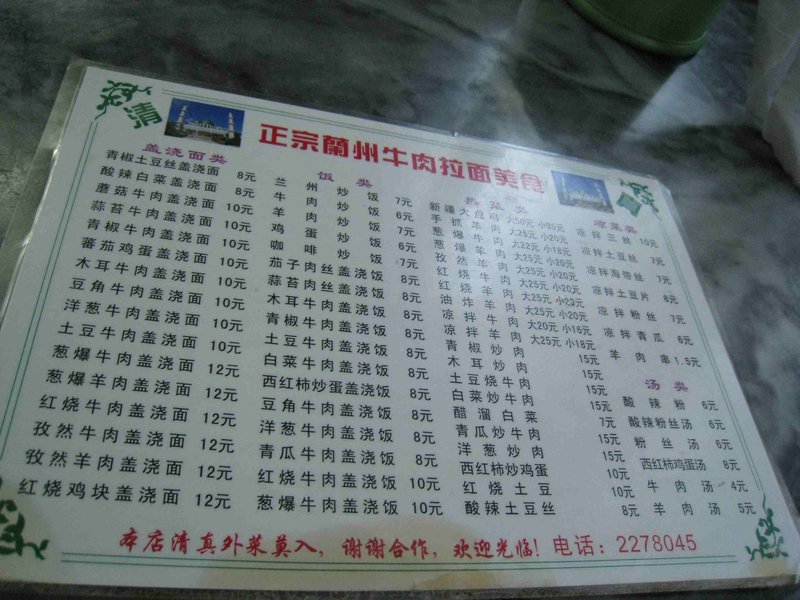 清
正宗蘭州牛肉拉面美食
盖浇面类
青椒土豆丝盖浇面 8元
酸辣白菜盖浇面 8元
蘑菇牛肉盖浇面 10元
蒜苔牛肉盖浇面 10元
青椒牛肉盖浇面 10元
蕃茄鸡蛋盖浇面 10元
木耳牛肉盖浇面 10元
豆角牛肉盖浇面 10元
洋葱牛肉盖浇面 10元
土豆牛肉盖浇面 10元
葱爆牛肉盖浇面 12元
葱爆羊肉盖浇面 12元
红烧牛肉盖浇面 12元
孜然牛肉盖浇面 12元
孜然羊肉盖浇面 12元
红烧鸡块盖浇面 12元
饭类
兰州炒饭 7元
牛肉炒饭 6元
羊肉炒饭 7元
鸡蛋炒饭 6元
咖啡炒饭 7元
茄子肉丝盖浇饭 8元
蒜苔肉丝盖浇饭 8元
木耳牛肉盖浇饭 8元
青椒牛肉盖浇饭 8元
土豆牛肉盖浇饭 8元
白菜牛肉盖浇饭 8元
西红柿炒蛋盖浇饭 8元
豆角牛肉盖浇饭 8元
洋葱牛肉盖浇饭 8元
青瓜牛肉盖浇饭 8元
红烧牛肉盖浇饭 10元
葱爆牛肉盖浇饭 10元
热菜类
新疆大盘鸡 大50元 小35元
手抓羊肉 大25元 小20元
葱爆牛肉 大22元 小18元
葱爆羊肉 大25元 小20元
孜然羊肉 大25元 小20元
红烧牛肉 大25元 小20元
红烧羊肉 大25元 小20元
油炸羊肉 大25元 小20元
凉拌牛肉 大20元 小16元
凉拌羊肉 大25元 小18元
青椒炒肉 15元
木耳炒肉 15元
土豆烧牛肉 15元
白菜炒牛肉 15元
醋溜白菜 7元
青瓜炒牛肉 15元
洋葱炒肉 15元
西红柿炒鸡蛋 10元
红烧土豆 10元
酸辣土豆丝 8元
凉菜类
凉拌三丝 10元
凉拌土豆丝 7元
凉拌海带丝 7元
凉拌土豆片 8元
凉拌粉丝 7元
凉拌青瓜 6元
羊肉串 1.5元
汤类
酸辣粉 6元
酸辣粉丝汤 6元
粉丝汤 6元
西红柿鸡蛋汤 8元
牛肉汤 4元
羊肉汤 5元
本店清真外菜莫入，谢谢合作，欢迎光临！电话：2278045